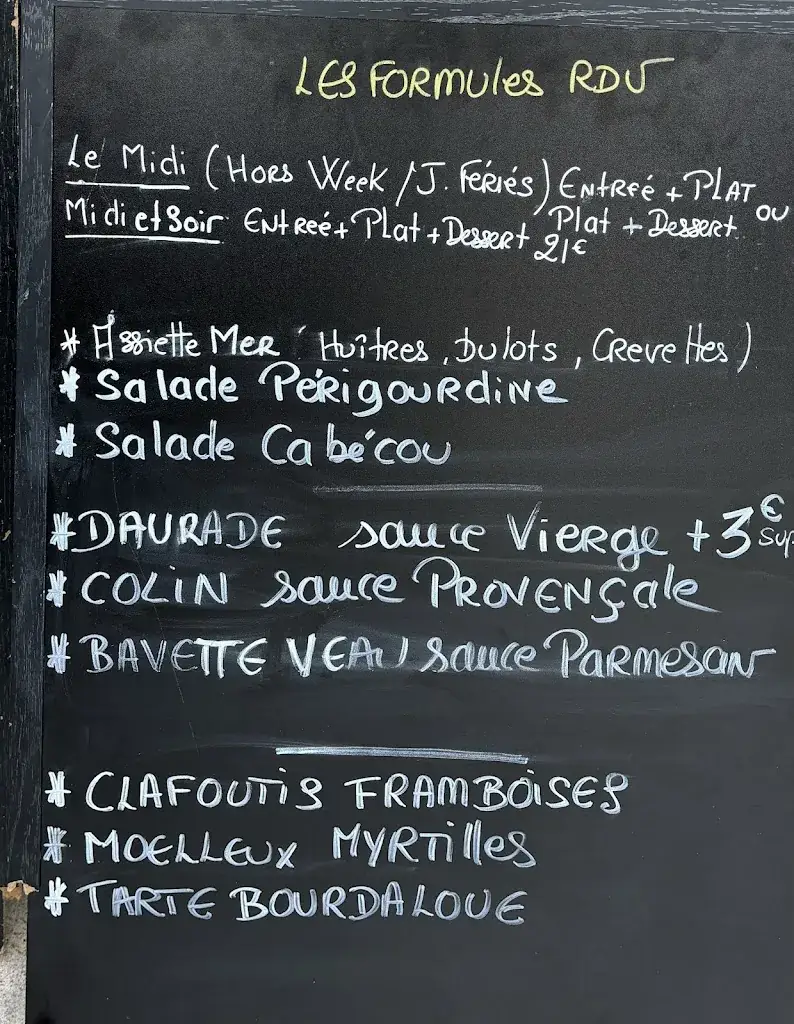 LES FORMULES RDV
Le Midi (HORS Week / J. FÉRIÉS) ENTREÉ + PLAT OU
Plat + DESSERT 21€
Midi et Soir ENTREÉ + Plat + DESSERT
* Assiette MER (Huîtres, bulots, Crevettes)
* Salade PÉRIGOURDINE
* Salade Cabécou
* DAURADE sauce Vierge +3€ Sup
* COLIN sauce PROVENÇale
* BAVETTE VEAU sauce PARMESAN
* CLAFOUTIS FRAMBOISES
* MOELLEUX MYRTilles
* TARTE BOURDALOUE